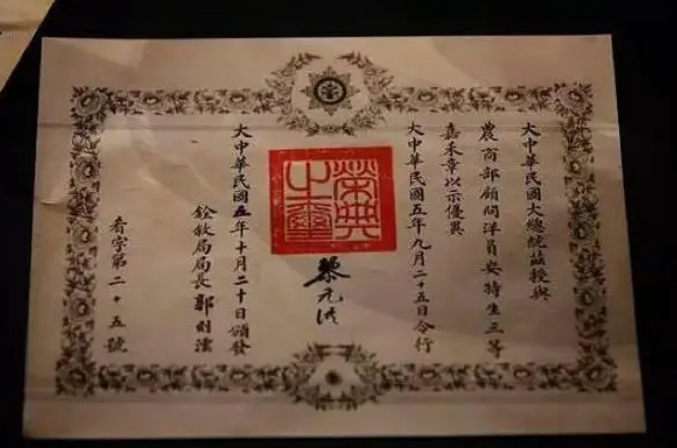 大中華民國大總統茲授與
農商部顧問洋員安特生三等
嘉禾章以示優異
大中華民國五年九月二十五日令行
榮典之璽
黎元洪
大中華民國五年十月二十日頒發
銓敘局局長 郭則澐
字第二十五號